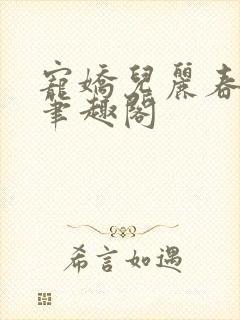 寵嬌兒麗春
筆趣閣
希言如遇